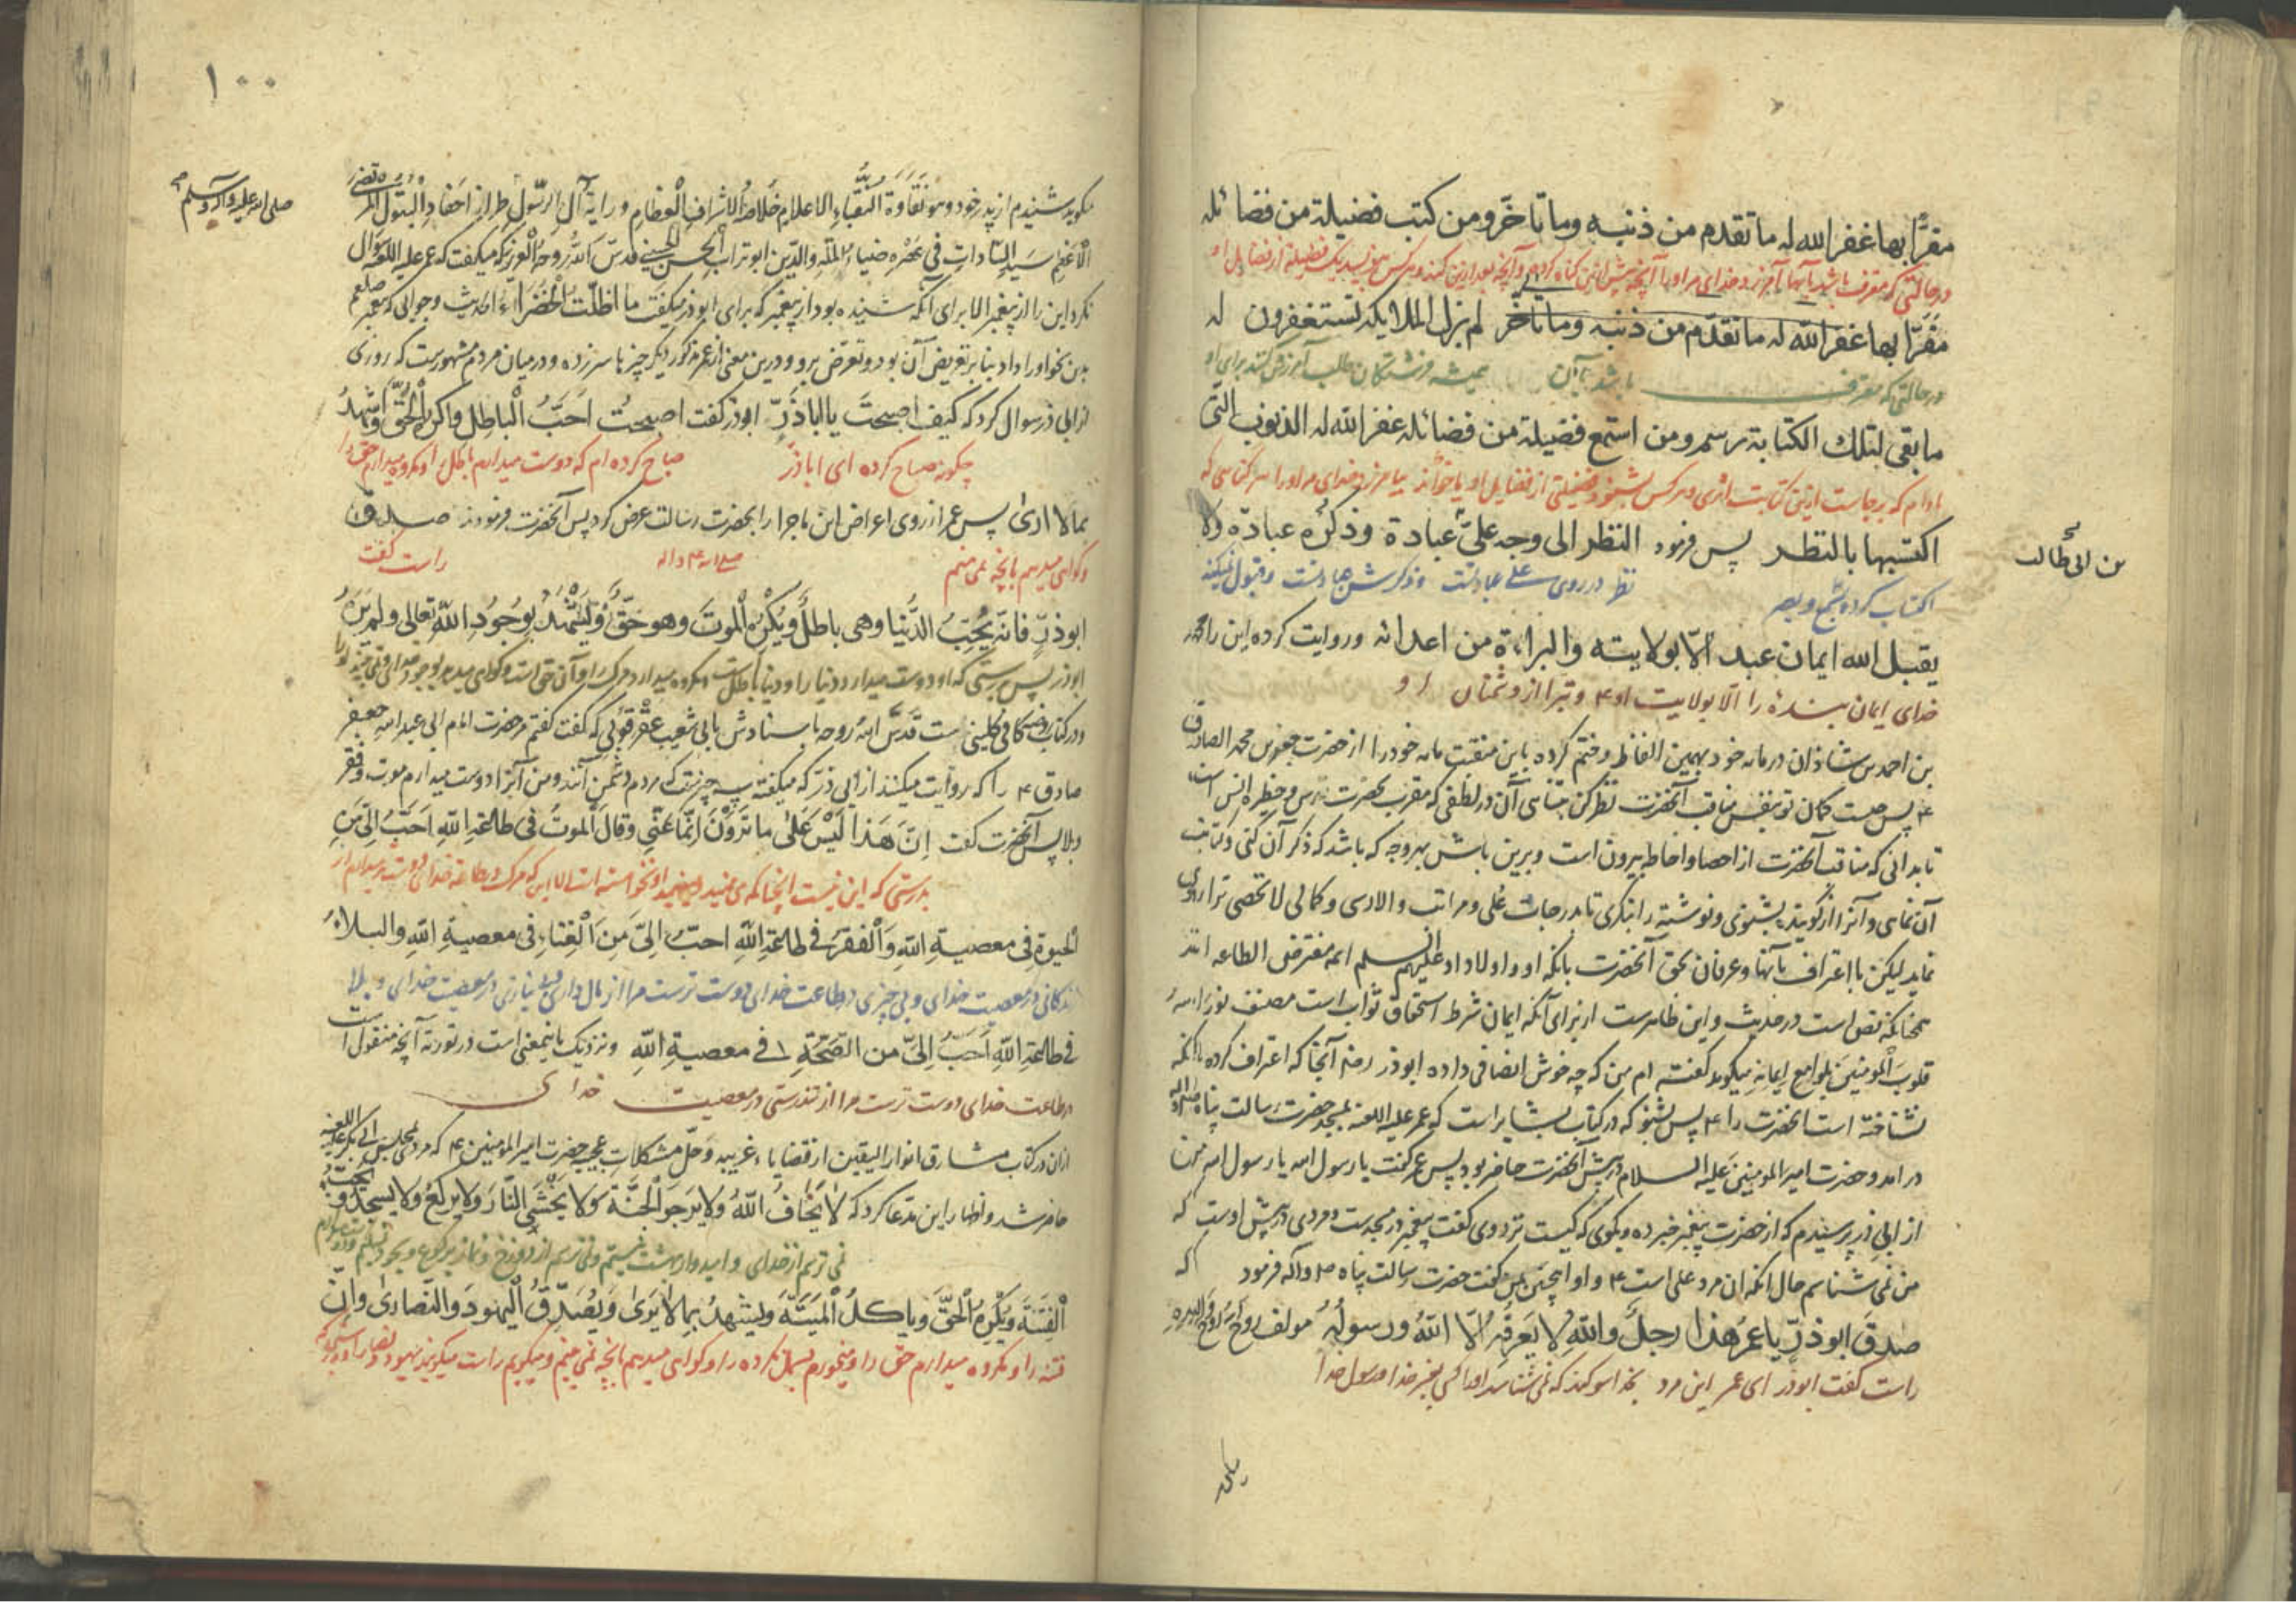 مقرًّا بها غفر الله له ما تقدم من ذنبه وما تأخّر ومن كتب فضيلة من فضائله
در حالتی که مقرف باشد بآنها آمرزد خدای مر او را آنچه پیش ازین کناه کرده و آنچه بعد ازین کند و هر کس بنویسد یک فضیلة از فضایل او
مقرّا بها غفر الله له ما تقدّم من ذنبه وما تأخّر لم يزل الملايكه تستغفرون له
در حالتی که معترف باشد بآن همیشه فرشتکان طلب آمرزش کنند برای او
ما بقى لتلك الكتابة رسم ومن استمع فضيلة من فضائله غفر الله له الذنوب التى
مادام که برجاست ازین کتابت اثری و هر کس بشنود فضیلتی از فضایل او بیامرزد خدای مر او را هر کناهی که
اكتسبها بالنظر پس فرمود النظر الى وجه علىّ عبادة وذكرُه عبادة ولا
بن ابی طالب
اکتساب کرده بسمع و بصر نظر در روی علی عبادتست و ذکرش عبادتست و قبول نمیکند
يقبل الله ايمان عبد الّا بولايته والبراءة من اعدائه وروایت کرده این را محمد
خدای ایمان بندهٔ را الّا بولایت او ۴ و تبرا از دشمنان او
بن احمد بن شاذان در مأه خود بهمین الفاظ و ختم کرده باین منقبت مأه خود را از حضرت جعفر بن محمد الصادق
تا بدانی که مناقب آنحضرت از احصا و احاطه بیرون است و برین باش بهر وجه که باشد که ذکر آن کنی و کتابت
آن نمای و آنرا از کوینده بشنوی و نوشته را بنکری تا بدرجات علی و مراتب والارسی و کمالی لا تحصی ترا روی
نماید لیکن با اعتراف بآنها و عرفان بحق آنحضرت بانکه او و اولاد او علیهم السلم ائمه مفترض الطاعه اند
همچنانکه نص است در حدیث و این ظاهرست از برای آنکه ایمان شرط استحقاق ثواب است مصنف نور الله
قلوب المومنین بلوامع ایمانه میکوید کفته ام من که چه خوش انصافی داده ابوذر رضه آنجا که اعتراف کرده بانکه
نشناخته است آنحضرت را ۴ پس بشنو که در کتاب بشایر است که عمر علیه اللعنه بمسجد حضرت رسالت پناه
در امد و حضرت امیر المومنین علیه السلام در پیش آنحضرت حاضر بود پس عمر کفت یا رسول الله یا رسول الله من
از ابی ذر پرسیدم که از حضرت پیغمبر خبر ده و بکوی که کیست نزد وی کفت پیغمبر در مسجدست و مردی در پیش اوست که
من نمی شناسم حال انکه ان مرد علی است ۴ و او اینچنین پس کفت حضرت رسالت پناه ص و اله فرمود که
صدق ابوذرّ يا عمرُ هذا رجلٌ والله لا يعرفه الّا اللهُ ورسولُهُ مولف روح الله روحه
راست کفت ابوذر ای عمر این مرد بخدا سوکند که نمی شناسد او را کسی بغیر خدا و رسول خدا
۱۰۰
میکوید شنیدم از پدر خود و هو نقاوة النقباء الاعلام خلاصة الاشراف العظام و راية آل الرسول طراز احفاد البتول
صلى الله عليه وآله وسلم
الاعظم سيد السادات فى عصره ضياء الملة والدين ابو تراب الحسن الحسينى قدس الله روحه العزيز که میکفت که عمر علیه اللعنه سوال
نکرد این را از پیغمبر الا برای آنکه شنیده بود از پیغمبر که برای ابوذر میکفت ما اظلّت الخضراء الحدیث و جوابی که پیغمبر صلعم
بدین نحو او را داد بنا بر تعریض آن بود و تعرض برو و درین معنی از عمر مذکور دیکر چیزها سر زده و در میان مردم مشهورست که روزی
از ابی ذر سوال کرد که كيف اصبحت يا اباذرّ ابوذر کفت اصبحت احبّ الباطل واكره الحقّ واشهد
چکونه صباح کرده ای اباذر صباح کرده ام که دوست میدارم باطل را و مکروه میدارم حق را
بما لا ارى پس عمر از روی اعراض این ماجرا را بحضرت رسالت عرض کرد پس آنحضرت فرمودند صدق
و کواهی میدهم بانچه نمی بینم راست کفت
ابوذرّ فانّه يحبّ الدنيا وهى باطلٌ ويكره الموت وهو حقّ ويشهد بوجود الله تعالى ولم يره
ابوذر پس بدرستی که او دوست میدارد دنیا را و دنیا باطلست و مکروه میدارد مرک را و آن حق است و کواهی میدهد بوجود خدا و نمی بیند او را
و در کتاب روضه کافی کلینی است قدس الله روحه باسنادش بابی شعیب عقرقوفی که کفت کفتم مر حضرت امام ابی عبد الله جعفر
صادق ۴ را که روایت میکنند از ابی ذر که میکفته سه چیزست که مردم دشمن آنند و من آنرا دوست میدارم موت و فقر
و بلا پس آنحضرت کفت انّ هذا ليس على ما ترون انّما عنى وقال الموت فى طاعة الله احبّ الىّ من
بدرستی که این نیست انچنانکه می بینید
الحيوة فى معصية الله والفقر فى طاعة الله احبّ الىّ من الغناء فى معصية الله والبلاء
زندکانی در معصیت خدای و بی چیزی در طاعت خدای دوست ترست مرا از مال داری و بی نیازی در معصیت خدای و بلا
فى طاعة الله احبّ الىّ من الصحّة فى معصية الله و نزدیک باینمعنی است در توریه آنچه منقول است
در طاعت خدای دوست ترست مرا از تندرستی در معصیت خدای
ازان در کتاب مشارق انوار الیقین از قضایاء غریبه و حلّ مشکلات عجیبه حضرت امیر المومنین ۴ که مردی بمجلس ابی بکر علیه اللعنه
حاضر شد و اظهار این مدعا کرد که لا يخاف الله ولا يرجو الجنّة ولا يخشى النار ولا يركع ولا يسجد و يحبّ
نمی ترسم از خدای و امیدوار بهشت نیستم و نمی ترسم از دوزخ و نماز برکوع و سجود
الفتنة ويكره الحقّ وياكل الميتة ويشهد بما لا يرى ويصدّق اليهود والنصارى وانّ
فتنه را و مکروه میدارم حق را و میخورم بسمل نکرده را و کواهی میدهم بانچه نمی بینم و میکویم راست میکویند یهود و نصارا